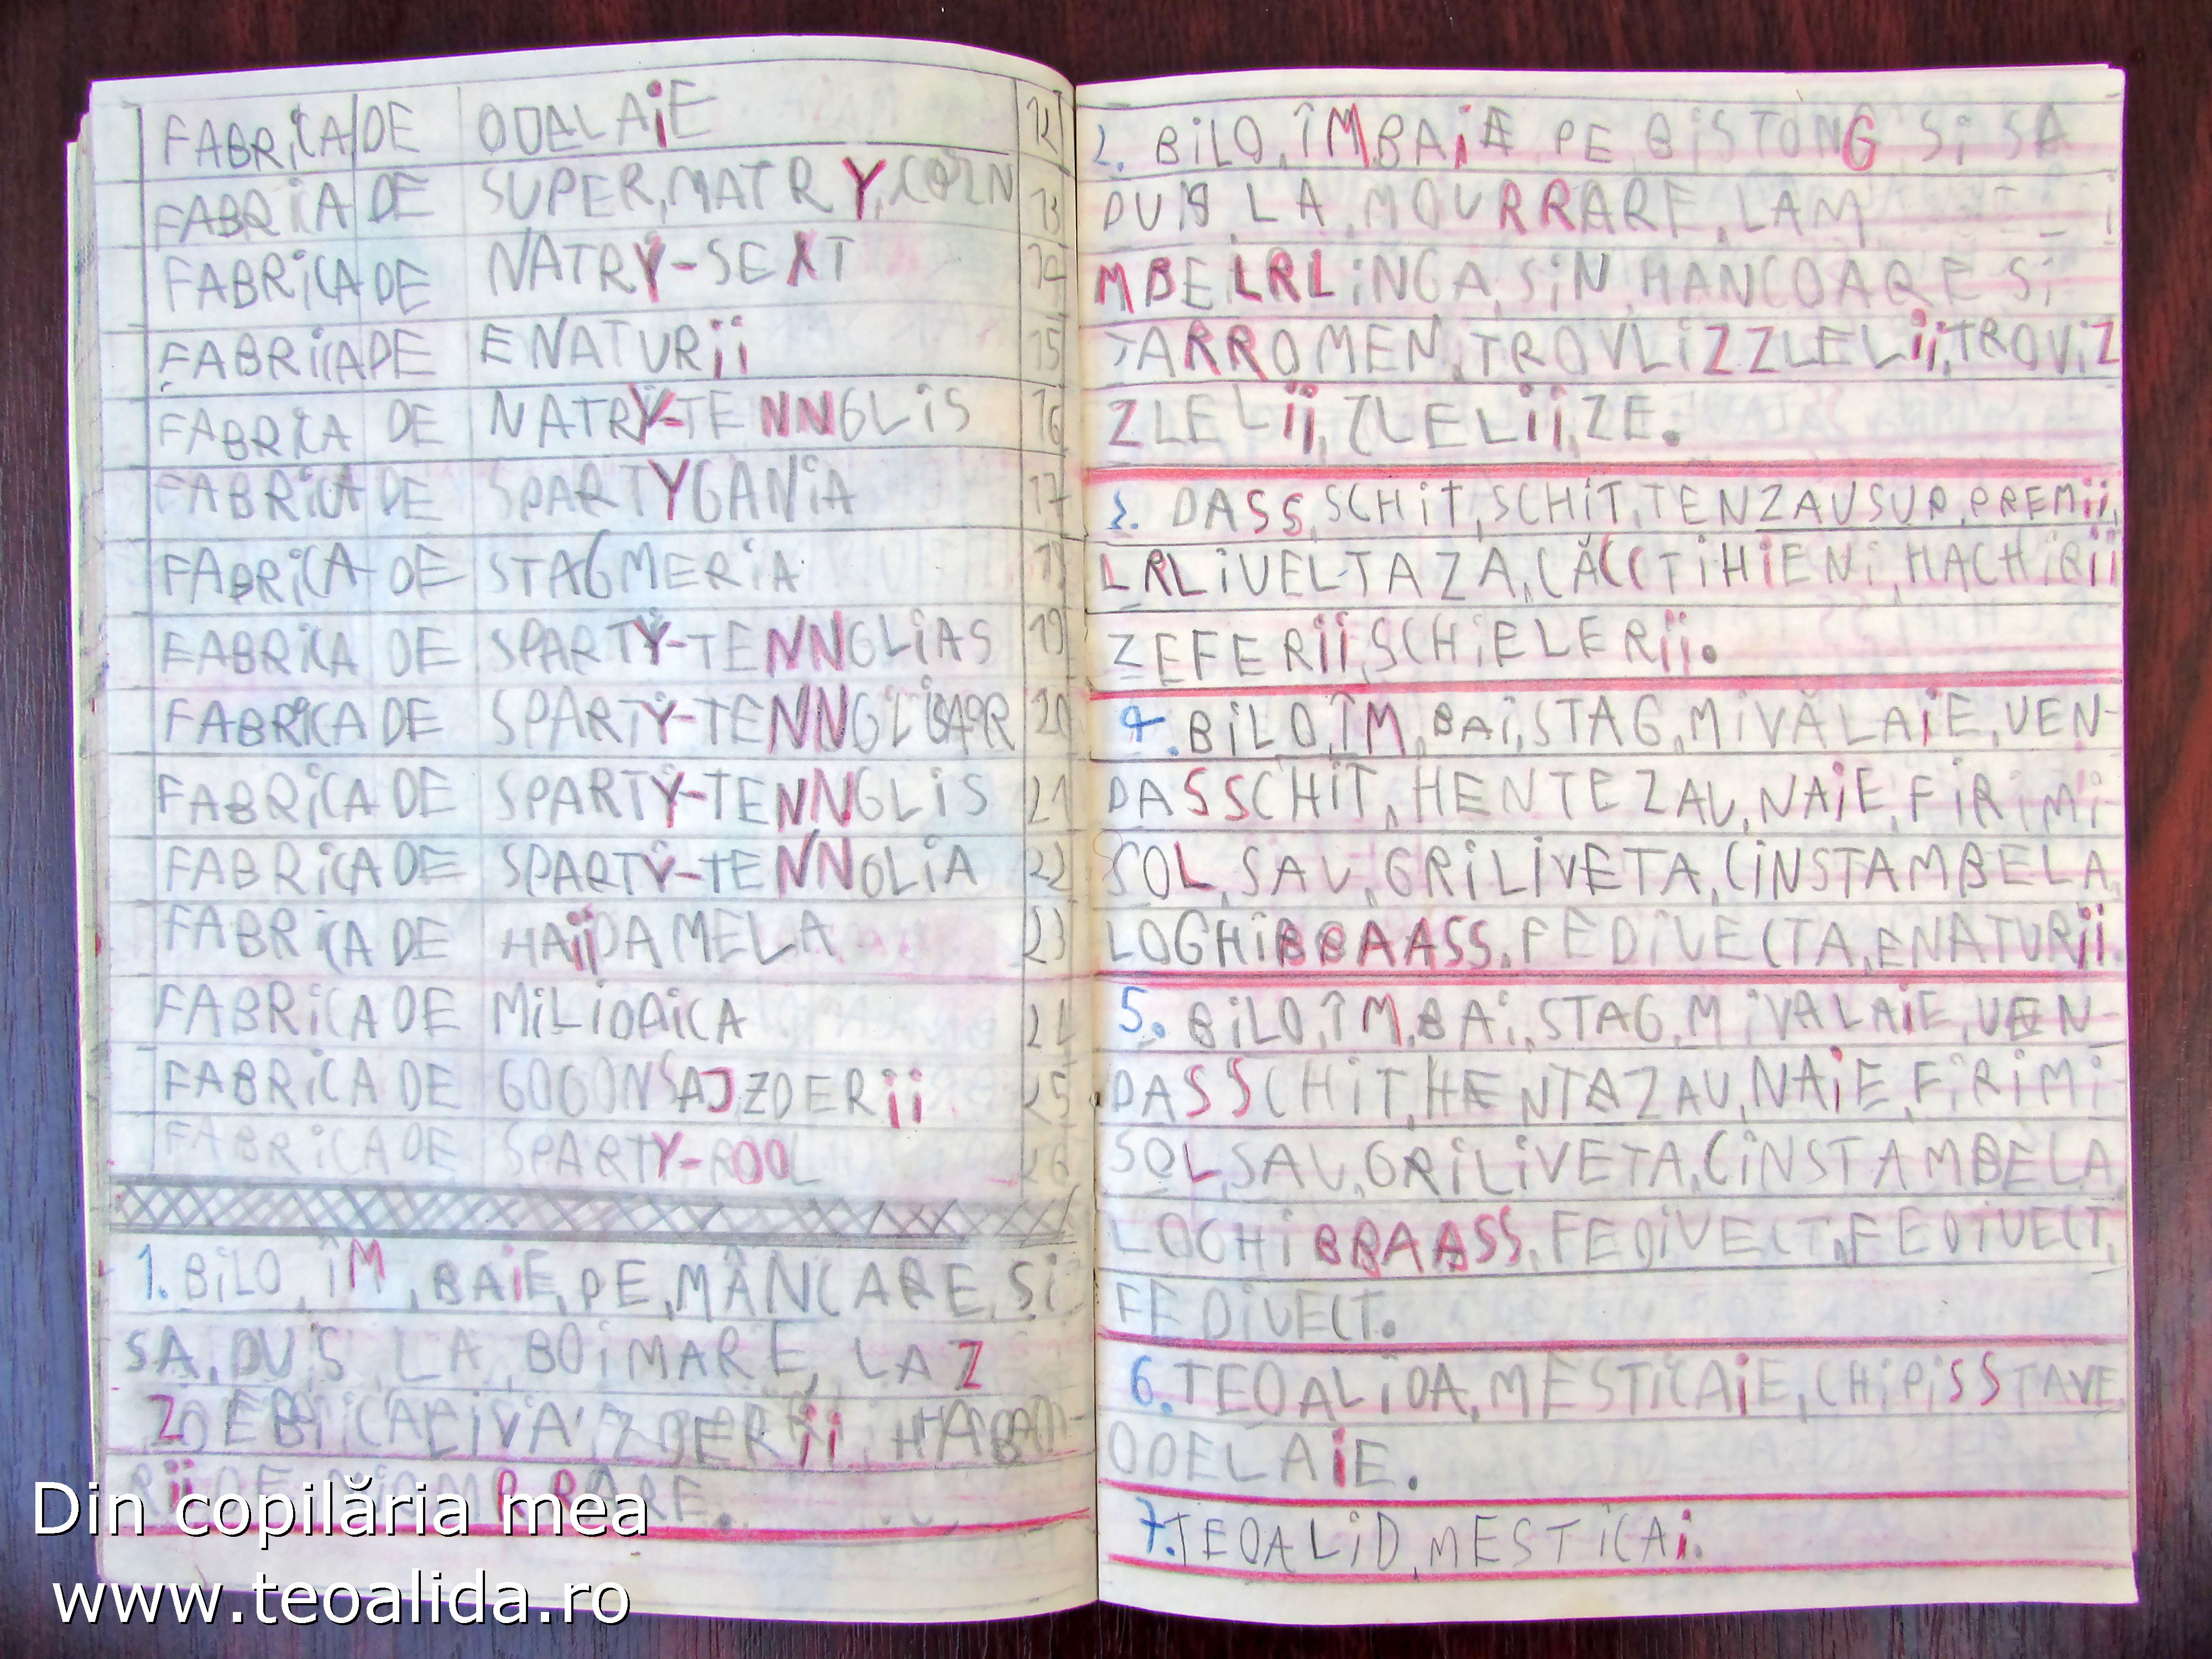 FABRiCA DE ODALAiE 12
FABRiCA DE SUPER,MATRY, 13
FABRiCA DE NATRY-SEXT 14
FABRiCA DE ENATURii 15
FABRiCA DE NATRY-TENNGLiS 16
FABRiCA DE SPARTYGANiA 17
FABRiCA DE STAGMERiA
FABRiCA DE SPARTY-TENNGLiAS 19
FABRiCA DE SPARTY-TENNGLiBAR 20
FABRiCA DE SPARTY-TENNGLiS 21
FABRiCA DE SPARTY-TENNOLiA 22
FABRiCA DE HAiiDAMELA 23
FABRiCA DE MiLiODiCA 24
FABRiCA DE GOGONSAJZDERii 25
FABRiCA DE SPARTY-ROOL 26
1. BiLO, ÎM, BAiE, PE, MÂNCARE, Si
SA, DUS LA BOiMARE, LA Z
ZDERii,
RARE.
2. BiLO, ÎM,BAiE PE BiSTONG Si SA
DUS LA MOURRARE, LAM
MBELRLiNGA, SiN, HANCOARE Si
TARROMEN, TROVLiZZLELii,TROViZ
ZLELii, ZLELii,ZE.
3. DASS, SCHiT, SCHiT, TENZAUSUR, PREMii,
LRLiVELTAZA, CĂCCTiHiENi, HACHiRii
ZEFERii,SCHiELERii.
4. BiLO,ÎM, BAi,STAG,MiVĂLAiE,VEN-
DASSCHiT, HENTEZAU, NAiE, FiRiMi-
SOL, SAU, GRiLiVETA, CiNSTAMBELA,
LOGHiBBAASS, FEDiVECTA,ENATURii.
5. BiLO,ÎM,BAi,STAG,MiVALAiE,VEN-
DASSCHiT,HENTAZAU,NAiE,FiRiMi-
SOL,SAU,GRiLiVETA,CiNSTAMBELA
LOGHiBBAASS, FEDiVECT,FEDiVECT,
FEDiVECT.
6. TEOALiDA, MESTiCAiE, CHiPiSSTAVE,
ODELAiE.
7.TEOALiD, MESTiCAi.
Din copilăria mea
www.teoalida.ro